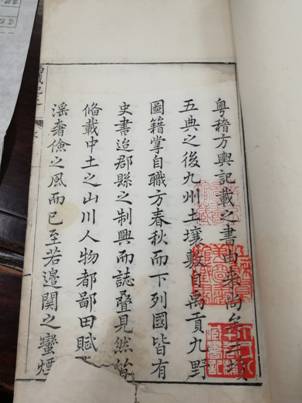 粵稽方輿記載之書由來尚矣三墳
五典之後九州土壤敷自禹貢九野
圖籍掌自職方春秋而下列國皆有
史書迨郡縣之制興而誌疊見然
偹載中土之山川人物都鄙田賦
淫奢儉之風而已至若邊關之蠻煙